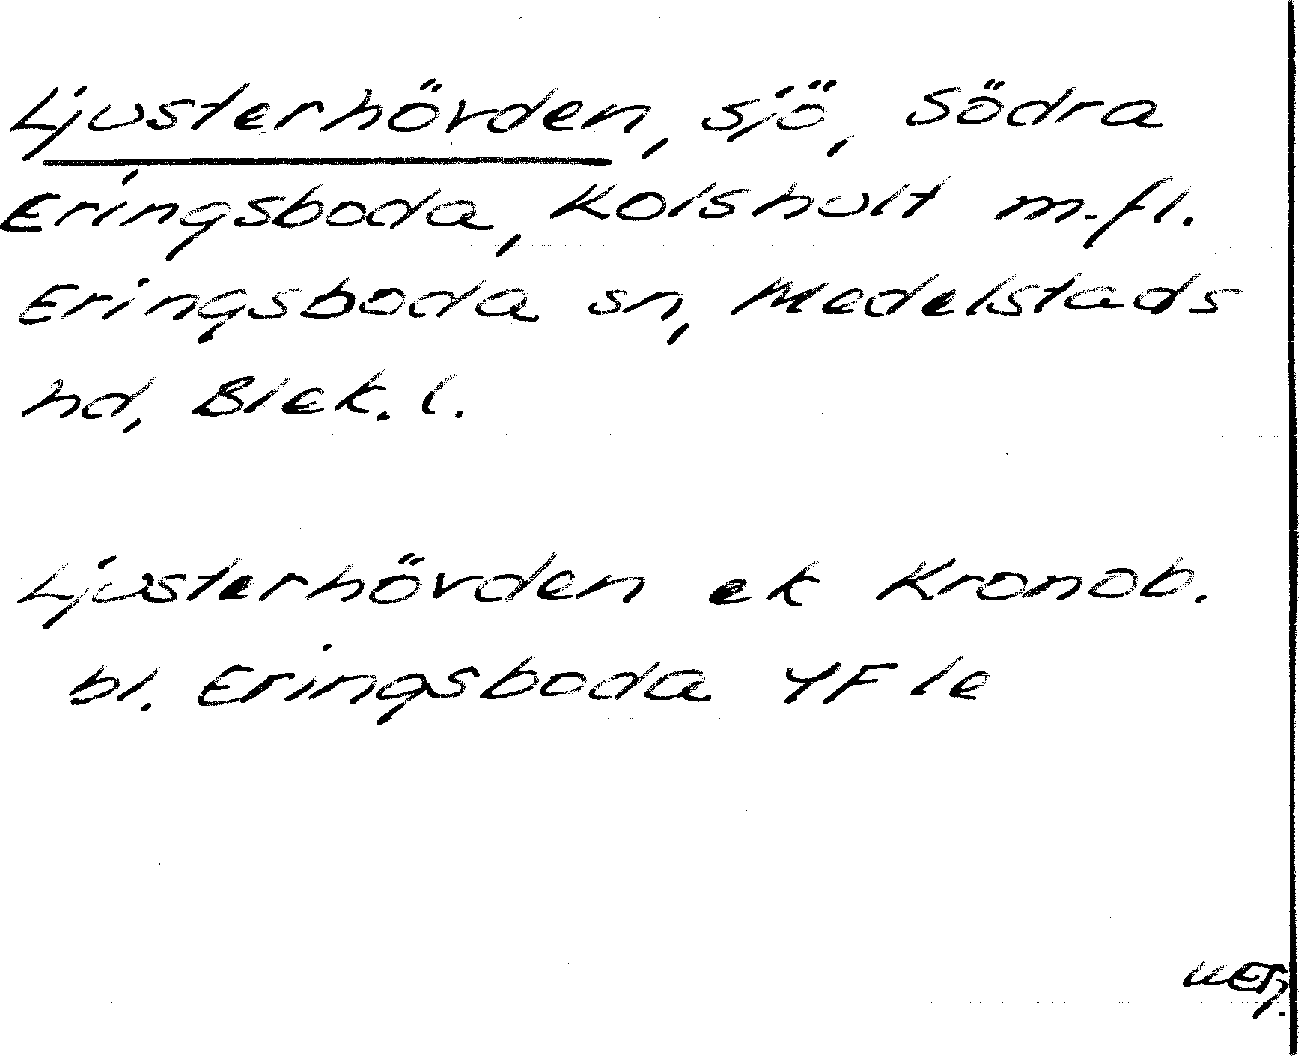 Ljusterhövden, sjö, Södra
Eringsboda, Kolshult m.fl.
Eringsboda sn, Medelstads
hd, Blek. l.
Ljusterhövden ek Kronob.
bl. Eringsboda 4F le